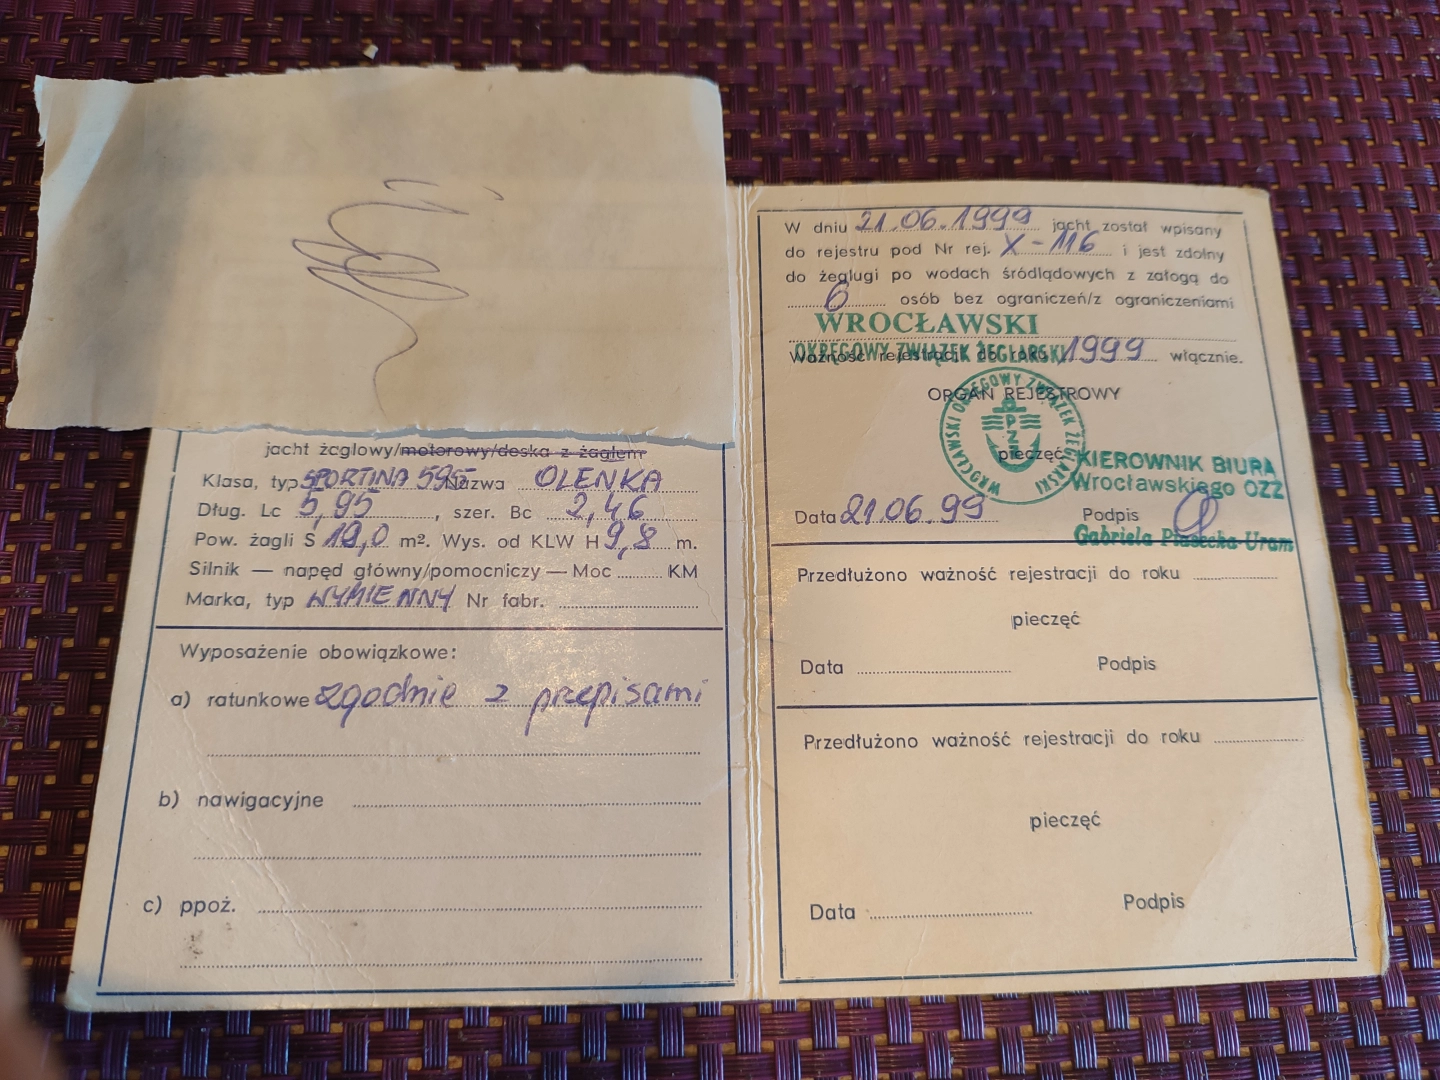 jacht żeglowy/motorowy/deska z żaglem
Klasa, typ SPORTINA 595 Nazwa OLENKA
Dług. Lc 5,95, szer. Bc 2,46
Pow. żagli S 19,0 m². Wys. od KLW H 9,8 m.
Silnik — napęd główny/pomocniczy — Moc .......... KM
Marka, typ WYMIENNY Nr fabr. ..........
Wyposażenie obowiązkowe:
a) ratunkowe zgodnie z przepisami
b) nawigacyjne
c) ppoż.
W dniu 21.06.1999 jacht został wpisany
do rejestru pod Nr rej. X-116 i jest zdolny
do żeglugi po wodach śródlądowych z załogą do
6 osób bez ograniczeń/z ograniczeniami
WROCŁAWSKI
OKRĘGOWY ZWIĄZEK ŻEGLARSKI
Ważność rejestracji do roku 1999 włącznie.
ORGAN REJESTROWY
WROCŁAWSKI OKRĘGOWY ZWIĄZEK ŻEGLARSKI
PZŻ
pieczęć
KIEROWNIK BIURA
Wrocławskiego OZŻ
Data 21.06.99 Podpis
Gabriela Piasecka-Uram
Przedłużono ważność rejestracji do roku ..........
pieczęć
Data .......... Podpis
Przedłużono ważność rejestracji do roku ..........
pieczęć
Data .......... Podpis